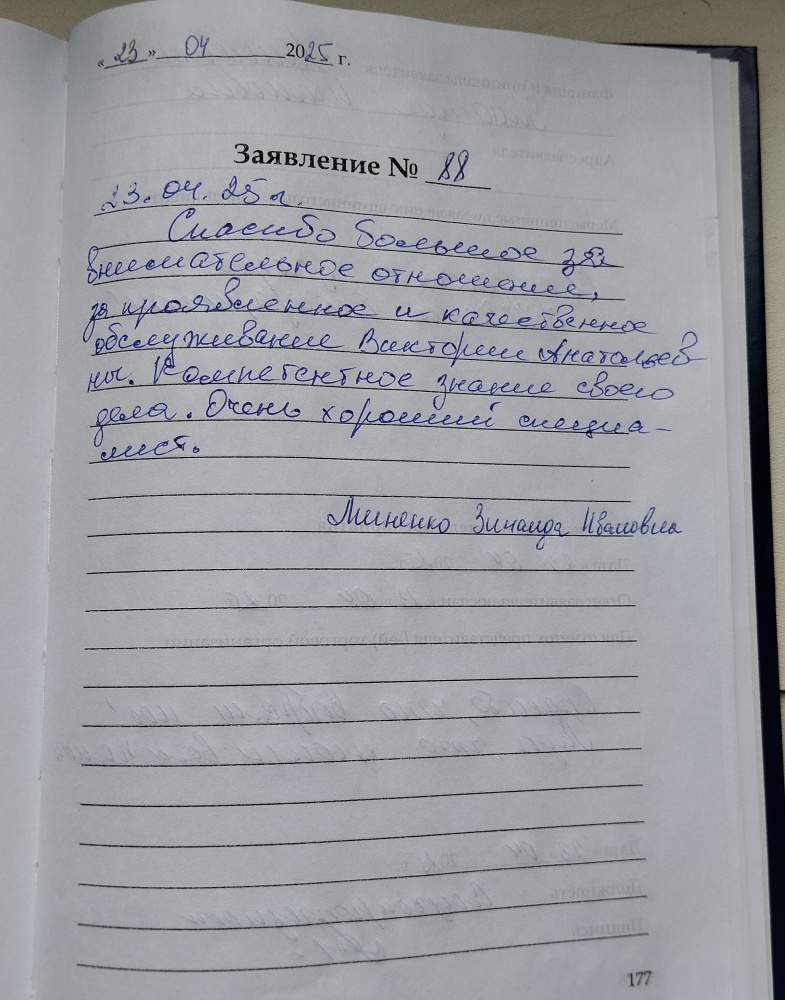 « 23 » 04 2025 г.
Заявление № 88
23.04.25г.
Спасибо большое за
внимательное отношение,
за проявленное и качественное
обслуживание Виктории Анатольев
ны. Компетентное знание своего
дела. Очень хороший специа-
лист.
Миненко Зинаида Ивановна
177